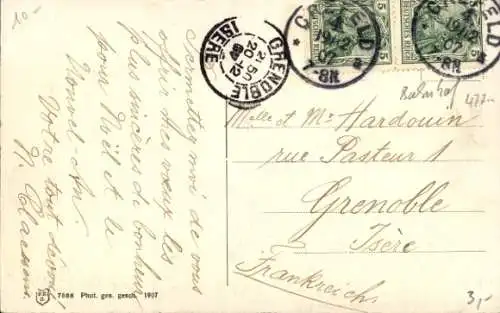 10-
Permettez-moi de vous
offrir mes vœux les
plus sincères de bonheur
pour Noël et le
Nouvel-An.
Votre tout dévoué,
N. Claessens.
7588 Phot. ges. gesch. 1907
GRENOBLE
ISÈRE
20-12
07
CREFELD
19.12.
07
7-8N
CREFELD
19.12.
07
-8N
5
5
Bahnhof
477-
Melle et Mr Hardouin
rue Pasteur 1
Grenoble
Isère
Frankreich
3,-